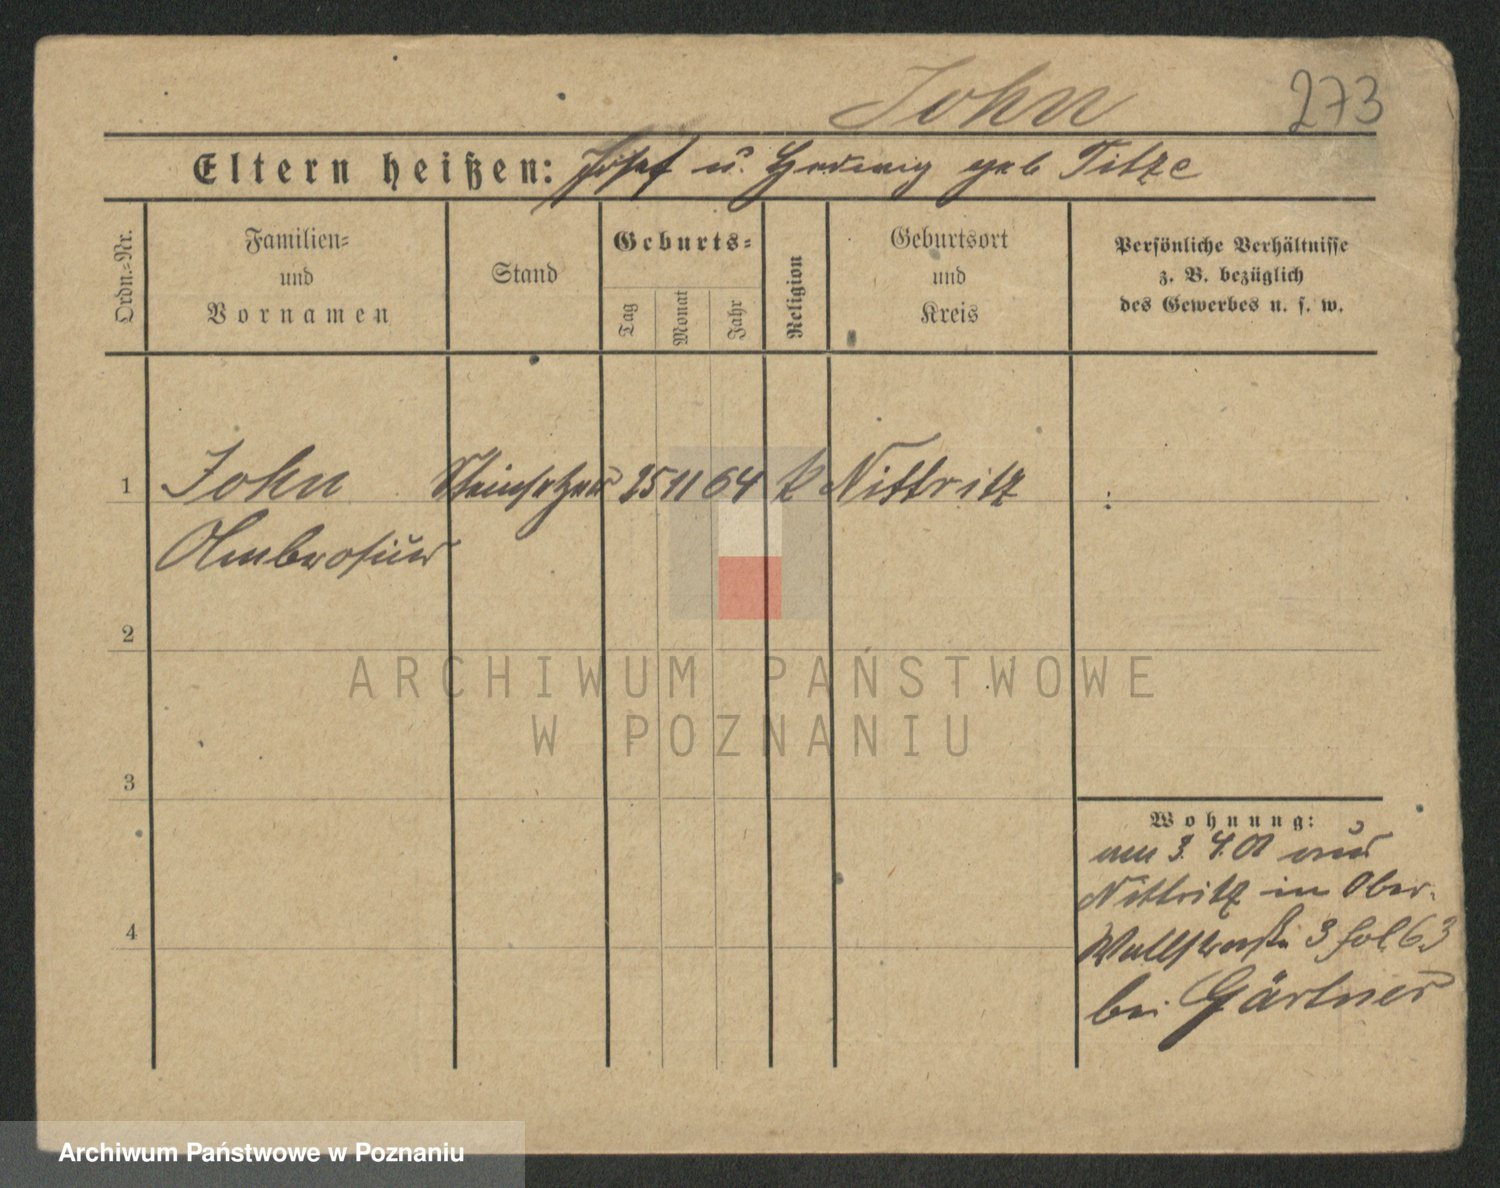 John 273
Eltern heißen: Josef u. Hedwig geb Titze
Ordn.=Nr.
Familien=
und
Vornamen
Stand
Geburts=
Tag
Monat
Jahr
Religion
Geburtsort
und
Kreis
Persönliche Verhältnisse
z. B. bezüglich
des Gewerbes u. s. w.
1 John Steinsetzer 25 11 64 k Nittritz
Ambrosius
2
3
4
Wohnung:
am 3. 4. 01 aus
Nittritz in Ober-
Wallstraße 3 fol. 63
bei Gärtner
ARCHIWUM PAŃSTWOWE
W POZNANIU
Archiwum Państwowe w Poznaniu